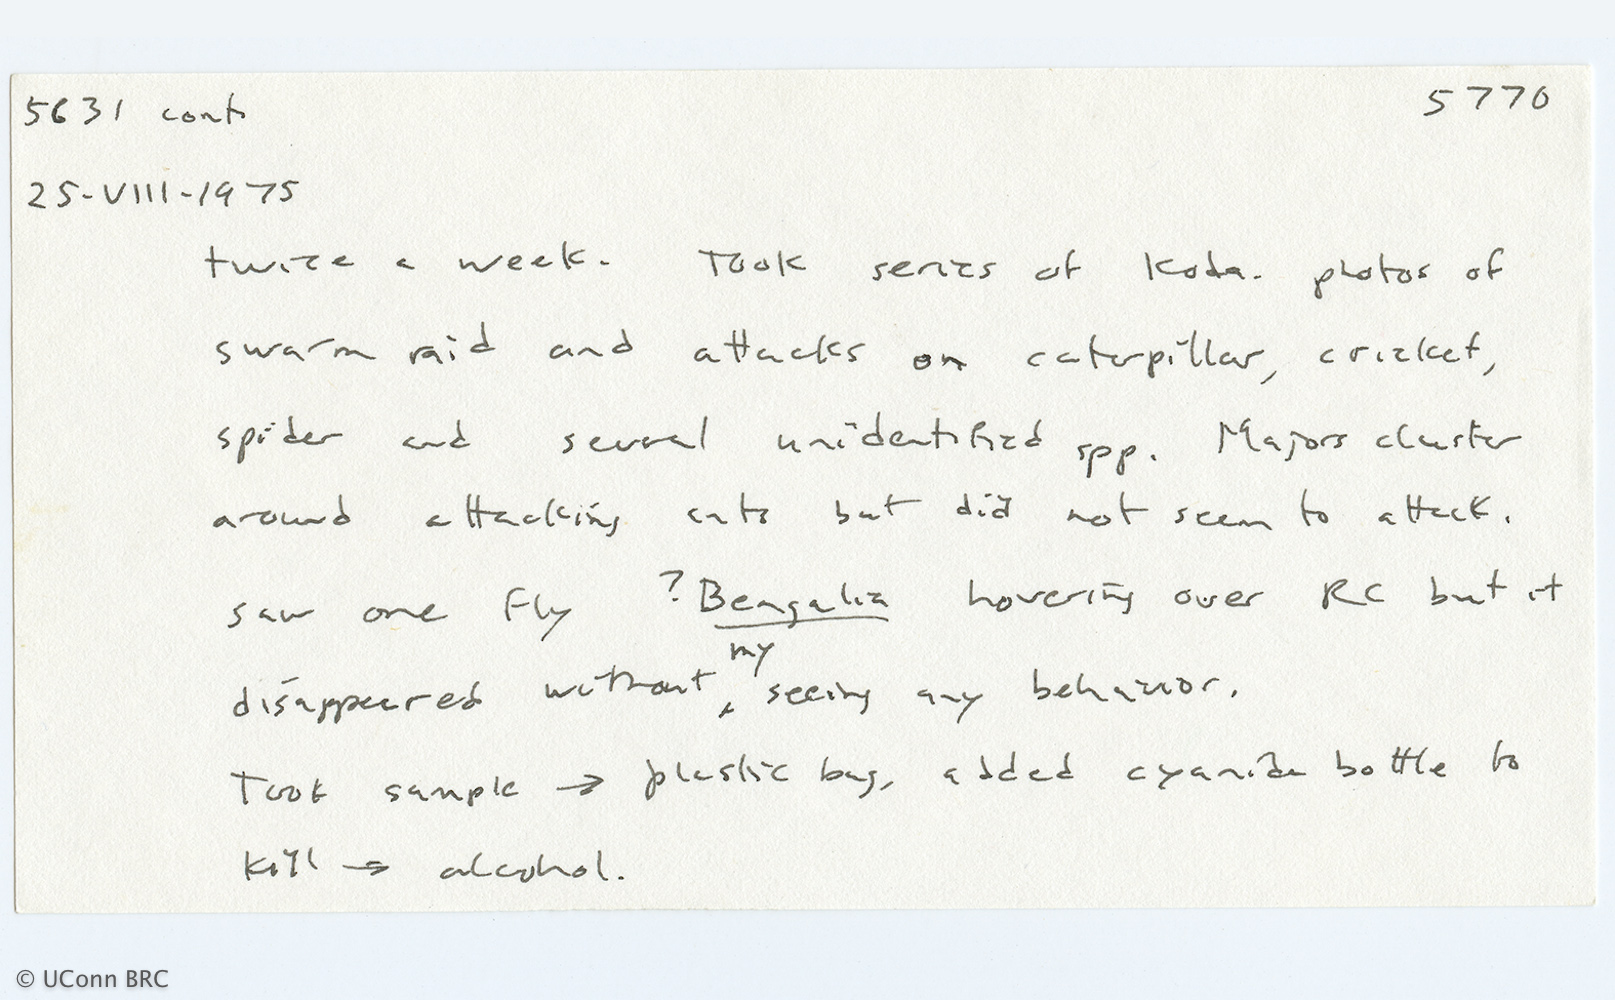 5631 cont. 5770
25-VIII-1975
twice a week. Took series of Koda. photos of
swarm raid and attacks on caterpillar, cricket,
spider and several unidentified spp. Majors cluster
around attacking ants but did not seem to attack.
saw one fly ?Bengalia hovering over RC but it
disappeared without my seeing any behavior.
Took sample → plastic bag, added cyanide bottle to
kill → alcohol.
© UConn BRC